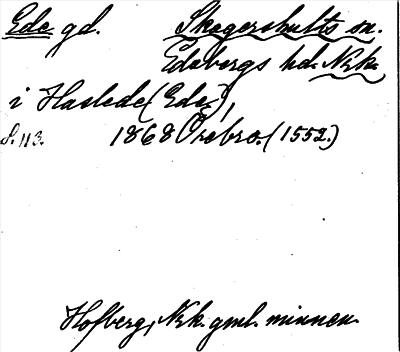 Ede gd. Skagershults sn.
Edsbergs hd. Nrk.
i Haslede (Ede),
S. 113. 1868 Örebro. (1552.)
Hofberg, Nrk. gml. minnen.